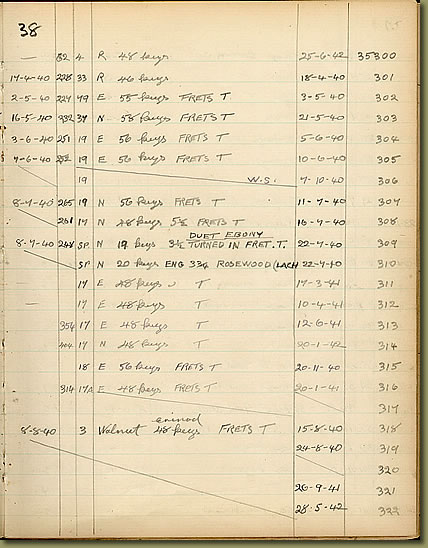 38
— 82 4 R 48 keys 25-6-42 35300
17-4-40 228 33 R 46 keys 18-4-40 301
2-5-40 224 49 E 55 keys FRETS T 3-5-40 302
16-5-40 232 39 N 58 keys FRETS T 21-5-40 303
3-6-40 251 19 E 56 keys FRETS T 5-6-40 304
7-6-40 252 19 E 56 keys FRETS T 10-6-40 305
19 W.S. 7-10-40 306
8-7-40 265 19 N 56 keys FRETS T 11-7-40 307
261 17 N 48 keys 5½ FRETS T 16-7-40 308
DUET EBONY
8-7-40 248 SP N 19 keys 3½ TURNED IN FRET. T. 22-7-40 309
SP N 20 keys ENG 33¼ ROSEWOOD (LACH 22-7-40 310
— 17 E 48 keys T 17-3-41 311
— 17 E 48 keys T 10-4-41 312
354 17 E 48 keys T 12-6-41 313
404 17 N 48 keys T 20-1-42 314
18 E 56 keys FRETS T 20-11-40 315
— 314 17A E 48 keys FRETS T 20-1-41 316
317
8-8-40 3 Walnut 48 keys FRETS T 15-8-40 318
24-8-40 319
320
26-9-41 321
28-5-42 322